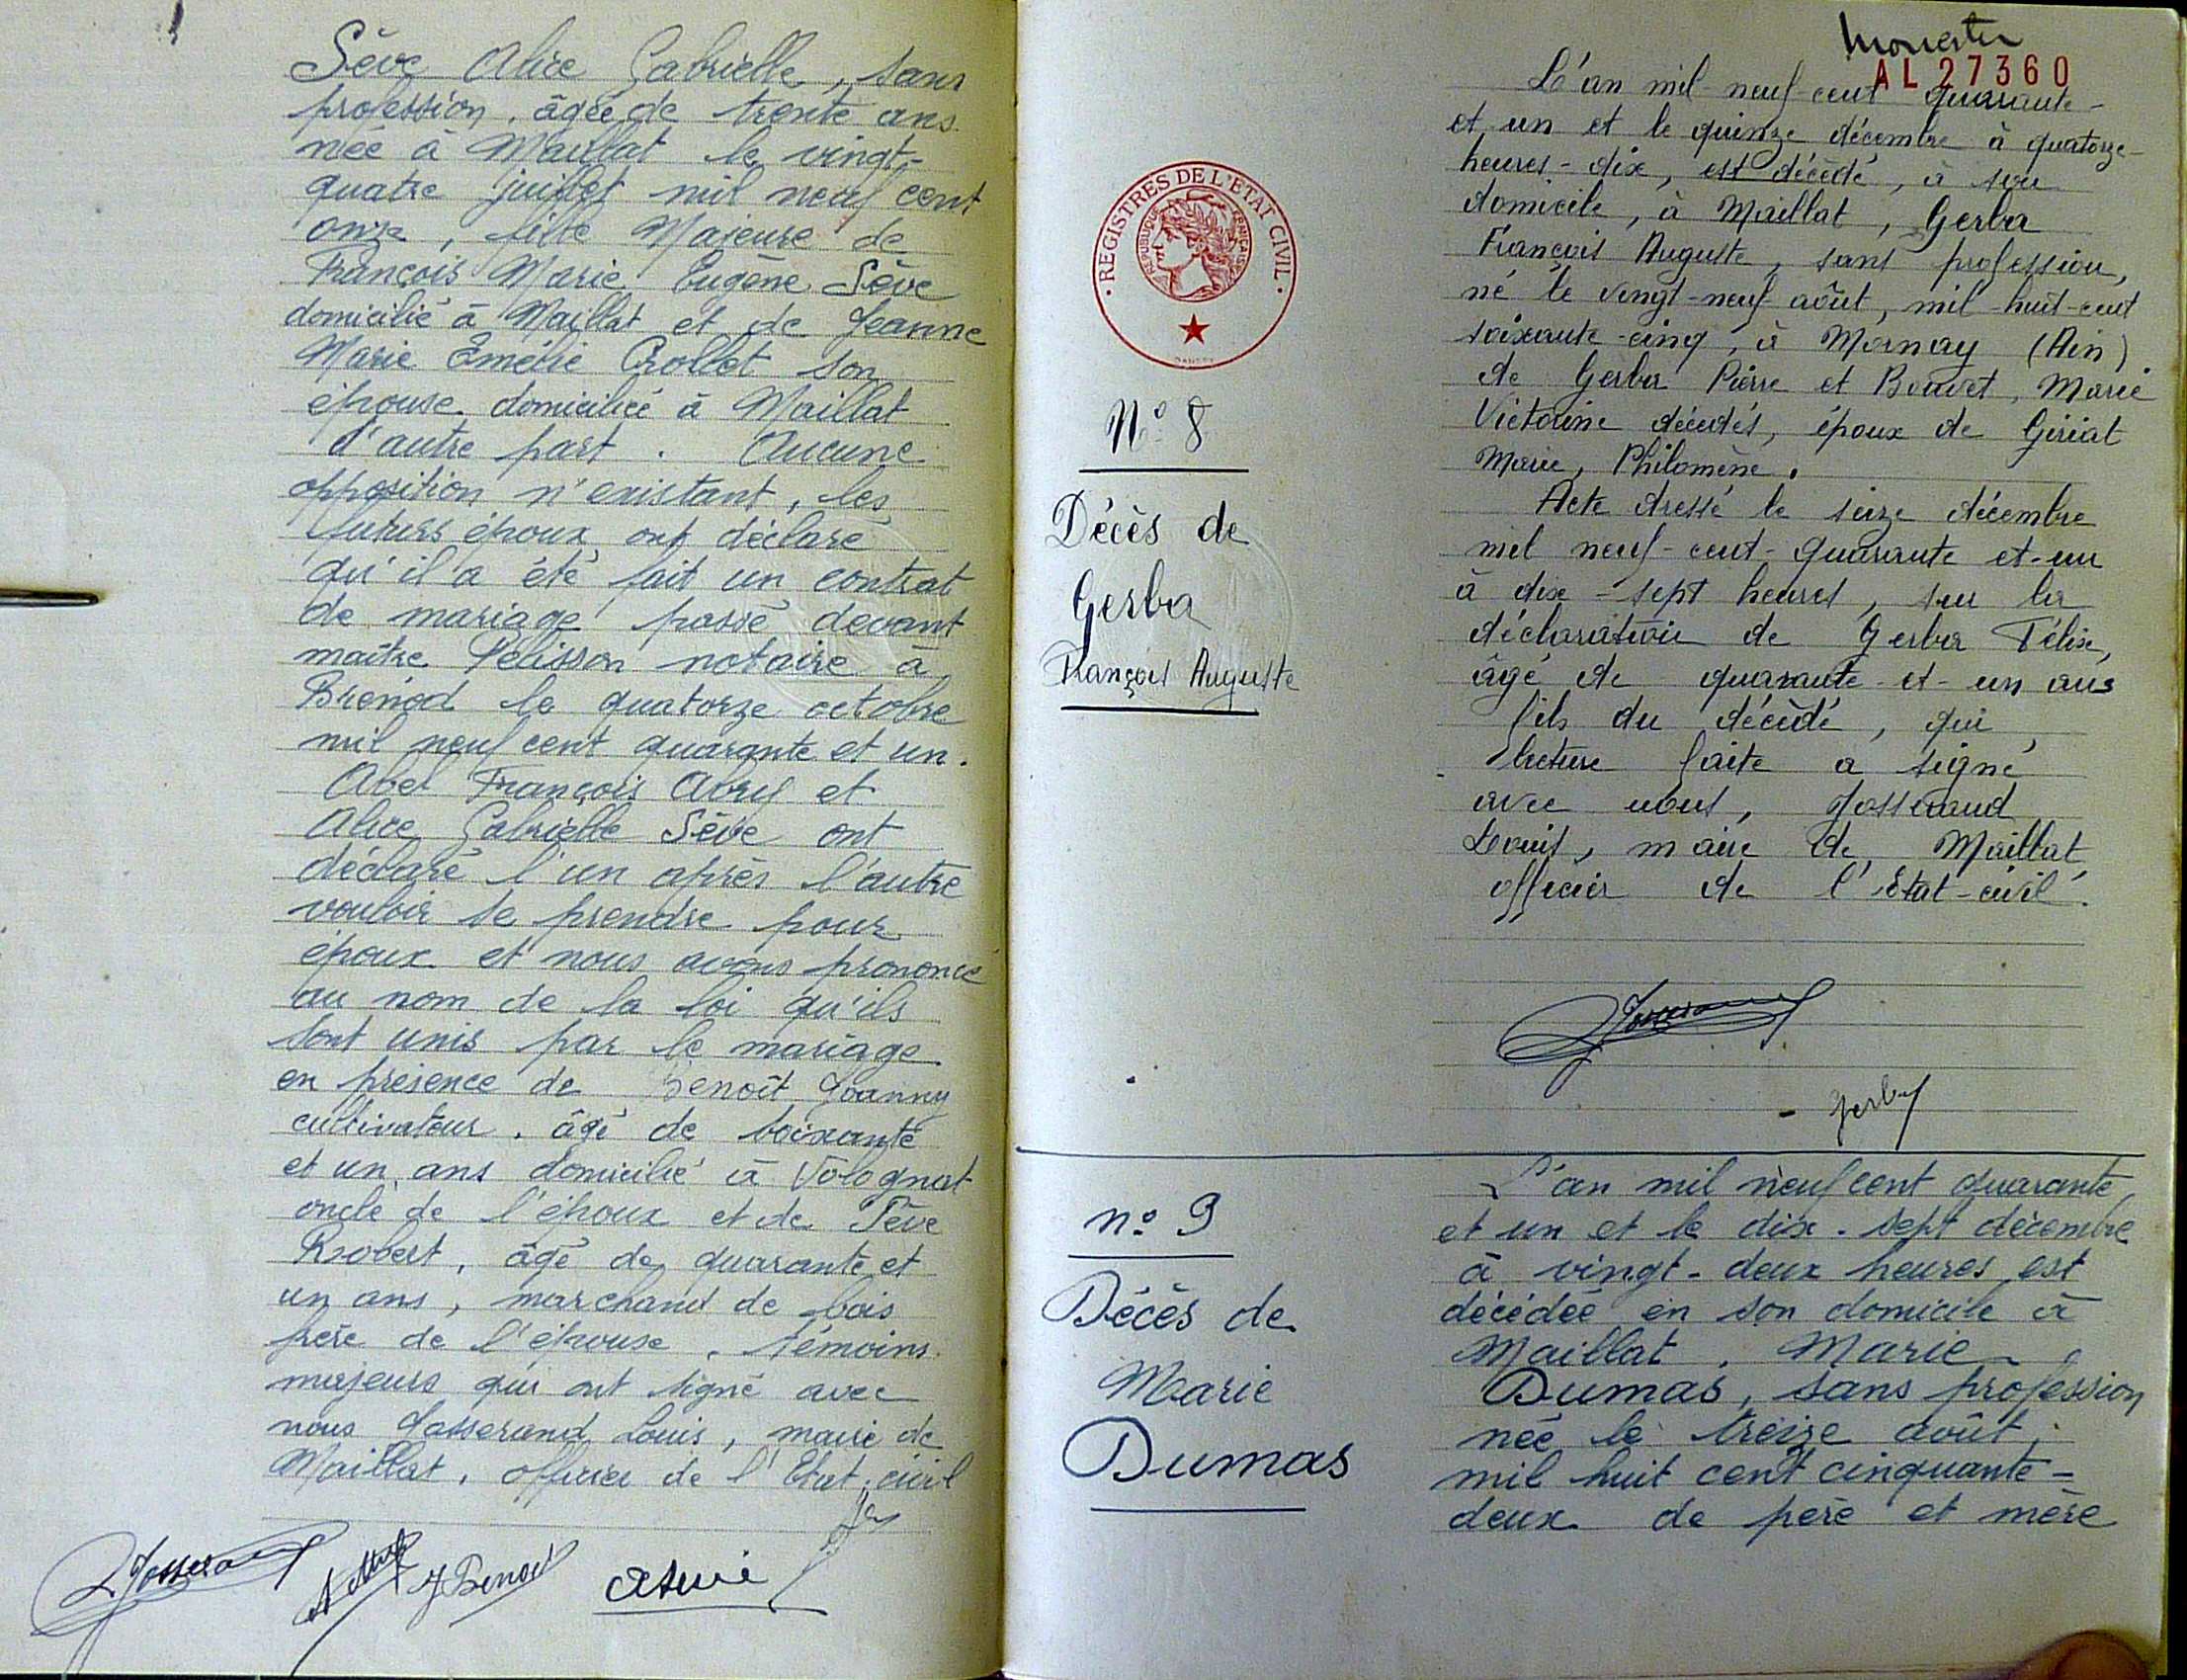 Sève Alice Gabrielle, sans
profession, âgée de trente ans
née à Maillat le vingt-
quatre juillet mil neuf cent
onze, fille Majeure de
François Marie Eugène Sève
domicilié à Maillat et de Jeanne
Marie Emélie Crollet son
épouse domiciliée à Maillat
d'autre part. Aucune
opposition n'existant, les
futurs époux ont déclaré
qu'il a été fait un contrat
de mariage passé devant
maître Pélisson notaire à
Brénod le quatorze octobre
mil neuf cent quarante et un.
Abel François et
Alice Gabrielle Sève ont
déclaré l'un après l'autre
vouloir se prendre pour
époux et nous avons prononcé
au nom de la loi qu'ils
sont unis par le mariage
en présence de Benoît Joanny
cultivateur, âgé de soixante
et un ans domicilié à Volognat
oncle de l'époux et de Sève
Robert, âgé de quarante et
un ans, marchand de bois
père de l'épouse, témoins
majeurs qui ont signé avec
nous Josserand Louis, maire de
Maillat, officier de l'Etat-civil
L Josserand J Benoit
REGISTRES DE L'ETAT CIVIL
REPUBLIQUE FRANÇAISE
N° 8
Décès de
Gerba
François Auguste
AL 27360
L'an mil-neuf cent quarante-
et un et le quinze décembre à quatorze-
heures-dix, est décédé, à son
domicile, à Maillat, Gerba
François Auguste, sans profession,
né le vingt-neuf août, mil-huit-cent
soixante-cinq, à Mornay (Ain)
de Gerba Pierre et Bouvet, Marie
Victorine décédés, époux de Giriat
Marie, Philomène.
Acte dressé le seize décembre
mil neuf-cent-quarante et-un
à dix-sept heures, sur la
déclaration de Gerba Félix,
âgé de quarante-et-un ans
fils du décédé, qui
lecture faite a signé
avec nous, Josserand
Louis, maire de Maillat,
officier de l'Etat-civil.
L Josserand
Gerba
n° 9
Décès de
Marie
Dumas
L'an mil neuf cent quarante
et un et le dix-sept décembre
à vingt-deux heures est
décédée en son domicile à
Maillat, Marie
Dumas, sans profession
née le treize août
mil huit cent cinquante-
deux de père et mère